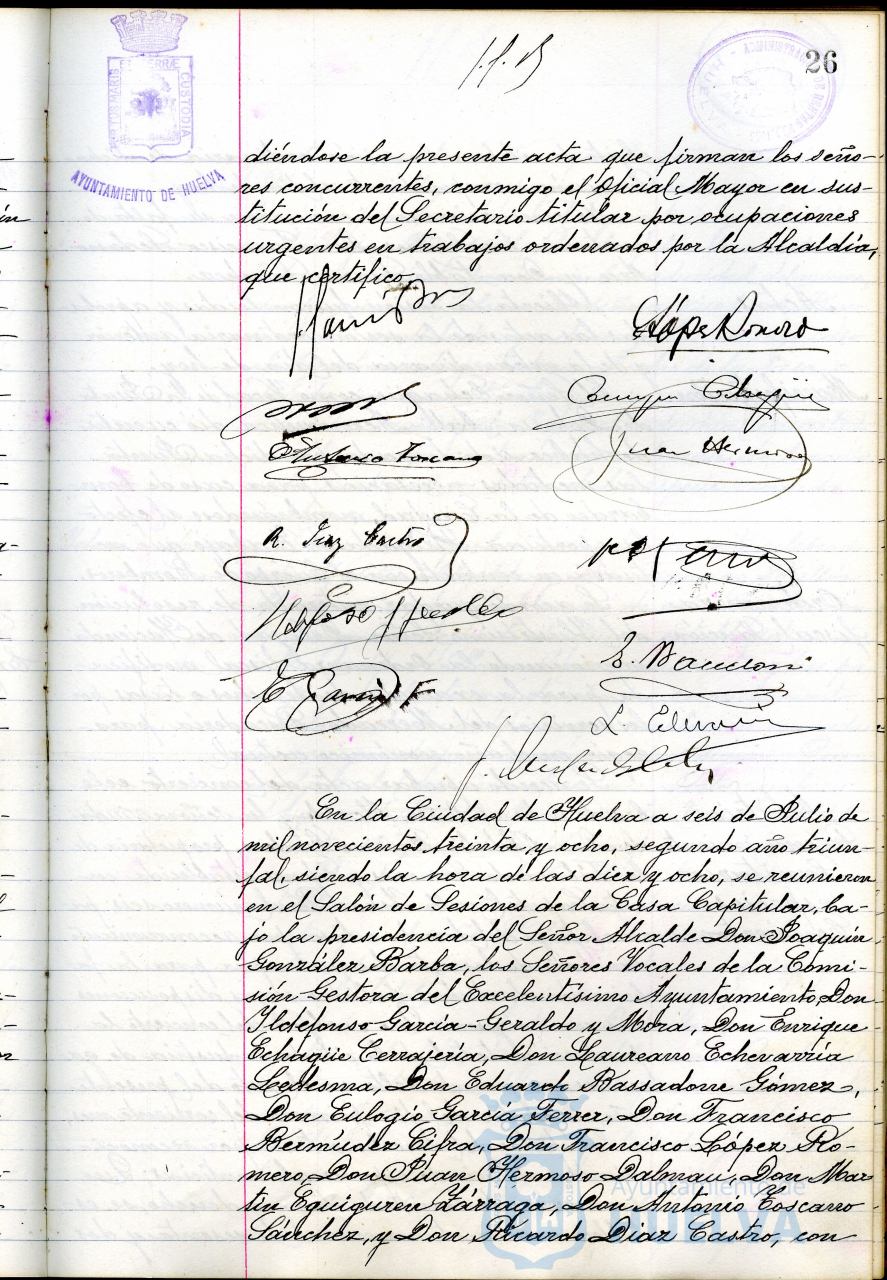 26
AYUNTAMIENTO DE HUELVA
CUSTODIA
diéndose la presente acta que firman los seño-
res concurrentes, conmigo el Oficial Mayor en sus-
titución del Secretario titular por ocupaciones
urgentes en trabajos ordenados por la Alcaldía,
que certifico
López Romero
Juan Hermoso
R. Diaz Castro
E. García F
En la Ciudad de Huelva a seis de Julio de
mil novecientos treinta y ocho, segundo año triun-
fal, siendo la hora de las diez y ocho, se reunieron
en el Salón de Sesiones de la Casa Capitular, ba-
jo la presidencia del Señor Alcalde Don Joaquín
González Barba, los Señores Vocales de la Comi-
sión Gestora del Excelentísimo Ayuntamiento, Don
Ildefonso García-Geraldo y Mora, Don Enrique
Echagüe Cerrajería, Don Laureano Echevarría
Ledesma, Don Eduardo Bassadone Gómez,
Don Eulogio García Ferrer, Don Francisco
Bermudez Cifra, Don Francisco López Ro-
mero, Don Juan Hermoso Dalmau, Don Mar
tín Eguiguren Zárraga, Don Antonio Toscano
Sánchez, y Don Ricardo Diaz Castro, con
Ayuntamiento de
HUELVA